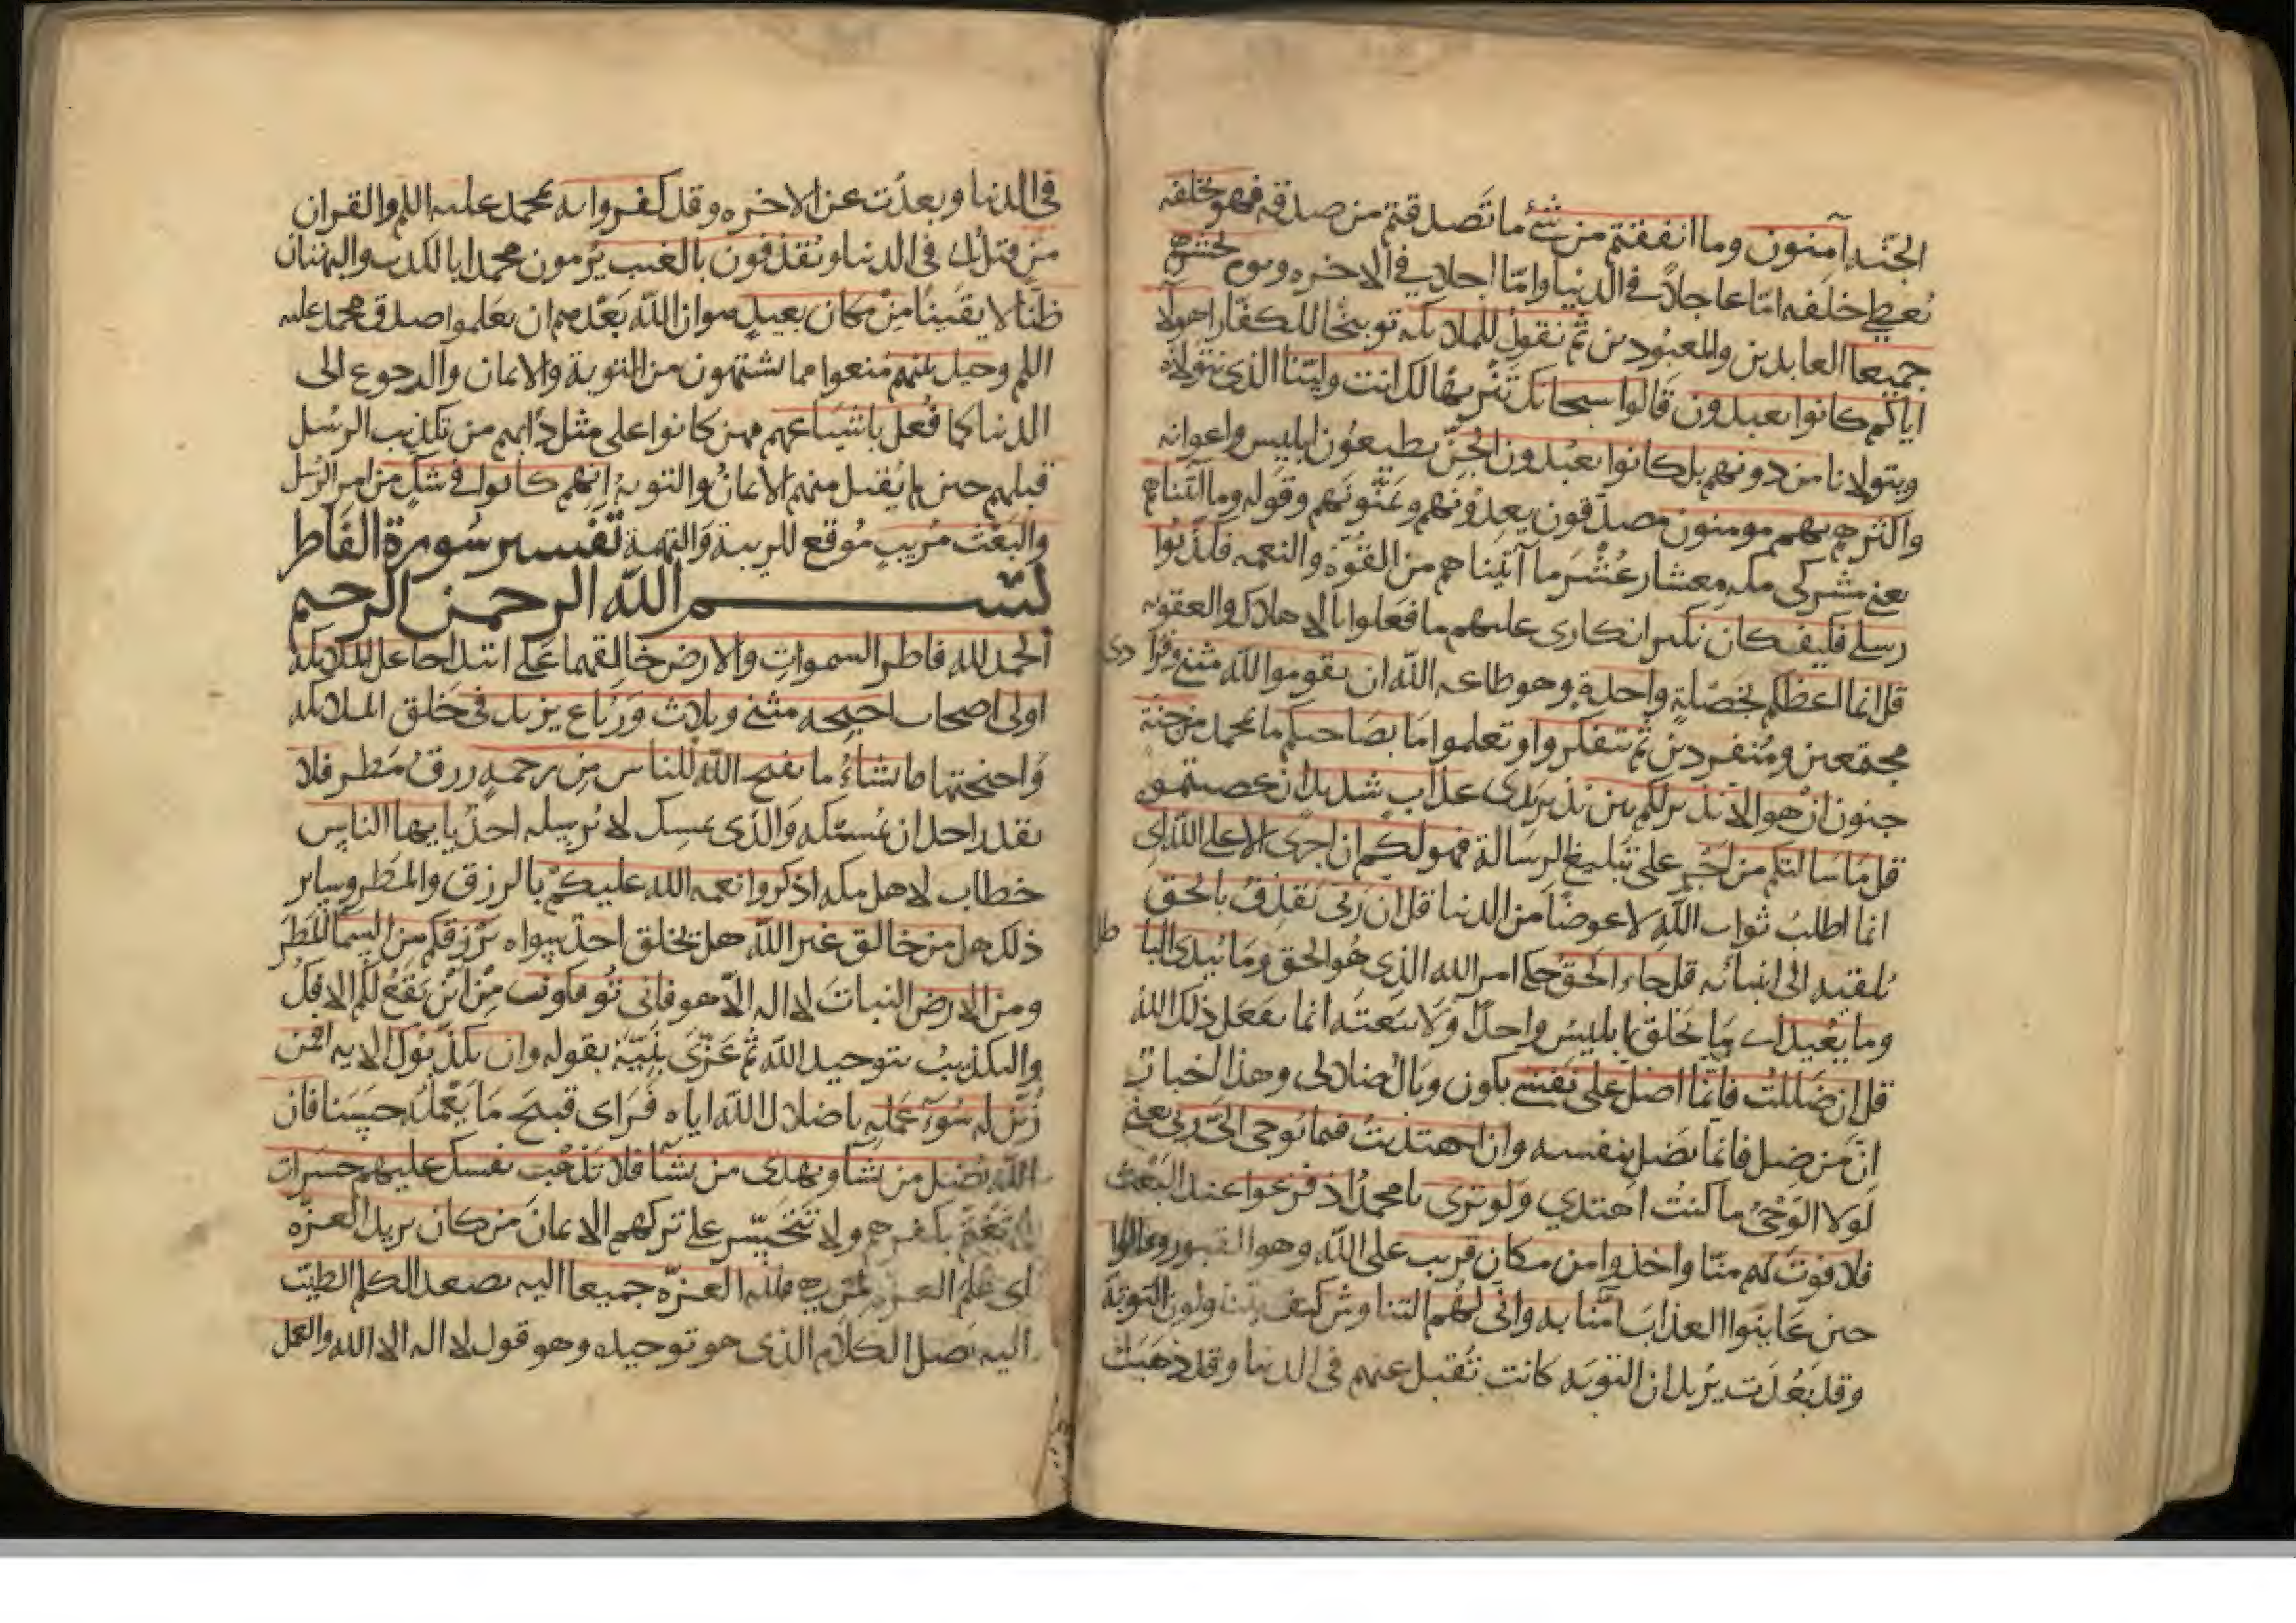 الجنه آمنون وما انفقتم من شئ ما تصدقتم من صدقه فهو يخلفه
يعطي خلفه امّا عاجلاً في الدنيا وامّا اجلا في الاخره ويوم نحشرهم
جميعا العابدين والمعبودين ثم نقول للملايكه توبيخا للكفار اهولاء
اياكم كانوا يعبدون قالوا سبحانك تنزيها لك انت وليّنا الذي نتولاه
ويتولانا من دونهم بل كانوا يعبدون الجنّ يطيعون ابليس واعوانه
واكثرهم بهم مومنون مصدّقون يعدونهم ويمنّونهم وقوله وما آتيناهم
يعني مشركى مكه معشار عُشر ما آتيناهم من القوّة والنعمه فكذبوا
رسلي فكيف كان نكير انكاري عليهم ما فعلوا بالاهلاك والعقوبه
قل انما اعظكم بخصلة واحدة وهو طاعه الله ان يقوموا لله مثنى وفرادى
مجتمعين ومنفردين ثم تتفكروا وتعلموا ما بصاحبكم ما بمحمد من جنة
جنون ان هو الا نذير لكم بين يدي عذاب شديد ان عصيتموه
قل ما سالتكم من اجر على تبليغ الرسالة فهو لكم ان اجرى الا على الله اى
انما اطلب ثواب الله لا عوضا من الدنيا قل ان ربى يقذف بالحق
يلقيه الى انبيائه قل جاء الحق جاء امر الله الذي هو الحق وما يبدى الباطل
وما يعيد اى ما يخلق ابليس واحدًا ولا يبعثه انما يفعل ذلك الله
قل ان ضللت فانما اضل على نفسي يكون وبال ضلالى وهذا اخبار
انّ من ضل فانما يضل بنفسه وان اهتديت فبما يوحى الىّ ربى يعني
لولا الوحى ما كنت اهتدي ولو ترى يا محمد اذ فزعوا عند البعث
فلا فوت لهم منّا واخذوا من مكان قريب على الله وهو القبور وقالوا
حين عاينوا العذاب آمنا به وانّى لهم التناوش كيف يتناولون التوبة
وقد بعدت يريد ان التوبه كانت تقبل عنهم في الدنيا وقد ذهبت
في الدنيا وبعدت عن الاخره وقد كفروا به بمحمد عليه اللم والقران
من قبل ذلك في الدنيا ويقذفون بالغيب يرمون محمدا بالكذب والبهتان
ظنا لا يقينا من مكان بعيد هو ان الله بعّدهم ان يعلموا صدق محمد عليه
اللم وحيل بينهم منعوا مما يشتهون من التوبة والايمان والرجوع الى
الدنيا كما فعل باشياعهم ممن كانوا على مثل دأبهم من تكذيب الرسل
قبلهم حين لم يقبل منهم الايمان والتوبة انهم كانوا في شك من امر الرسل
والبعث مريب موقع للريبة والتهمة تفسير سورة الفاطر
بسم الله الرحمن الرحيم
الحمد لله فاطر السموات والارض خالقهما على ابتداء جاعل الملايكة
اولى اصحاب اجنحه مثنى وثلاث ورباع يزيد في خلق الملايكه
واجنحتها ما يشاء ما يفتح الله للناس من رحمة رزق مطر فلا
يقدر احد ان يمسكه والذى يمسك لا يرسله احد يا ايها الناس
خطاب لاهل مكه اذكروا نعمه الله عليكم بالرزق والمطر وساير
ذلك هل من خالق غير الله هل يخلق احد سواه يرزقكم من السما المطر
ومن الارض النبات لا اله الا هو فانى توفكون من اين يقع لكم الافك
والتكذيب بتوحيد الله ثم عزّى نبيّه بقوله وان يكذبوك الايه افمن
زين له سوء عمله باضلال الله اياه فراى قبيح ما يعمله حسنا فان
الله يضل من يشا ويهدى من يشا فلا تذهب نفسك عليهم حسرات
لا تغتم بكفرهم ولا تتحسّر على تركهم الايمان من كان يريد العزه
اى علم العزه لمن هي فلله العزه جميعا اليه يصعد الكلم الطيب
اليه يصل الكلام الذى هو توحيده وهو قول لا اله الا الله والعمل